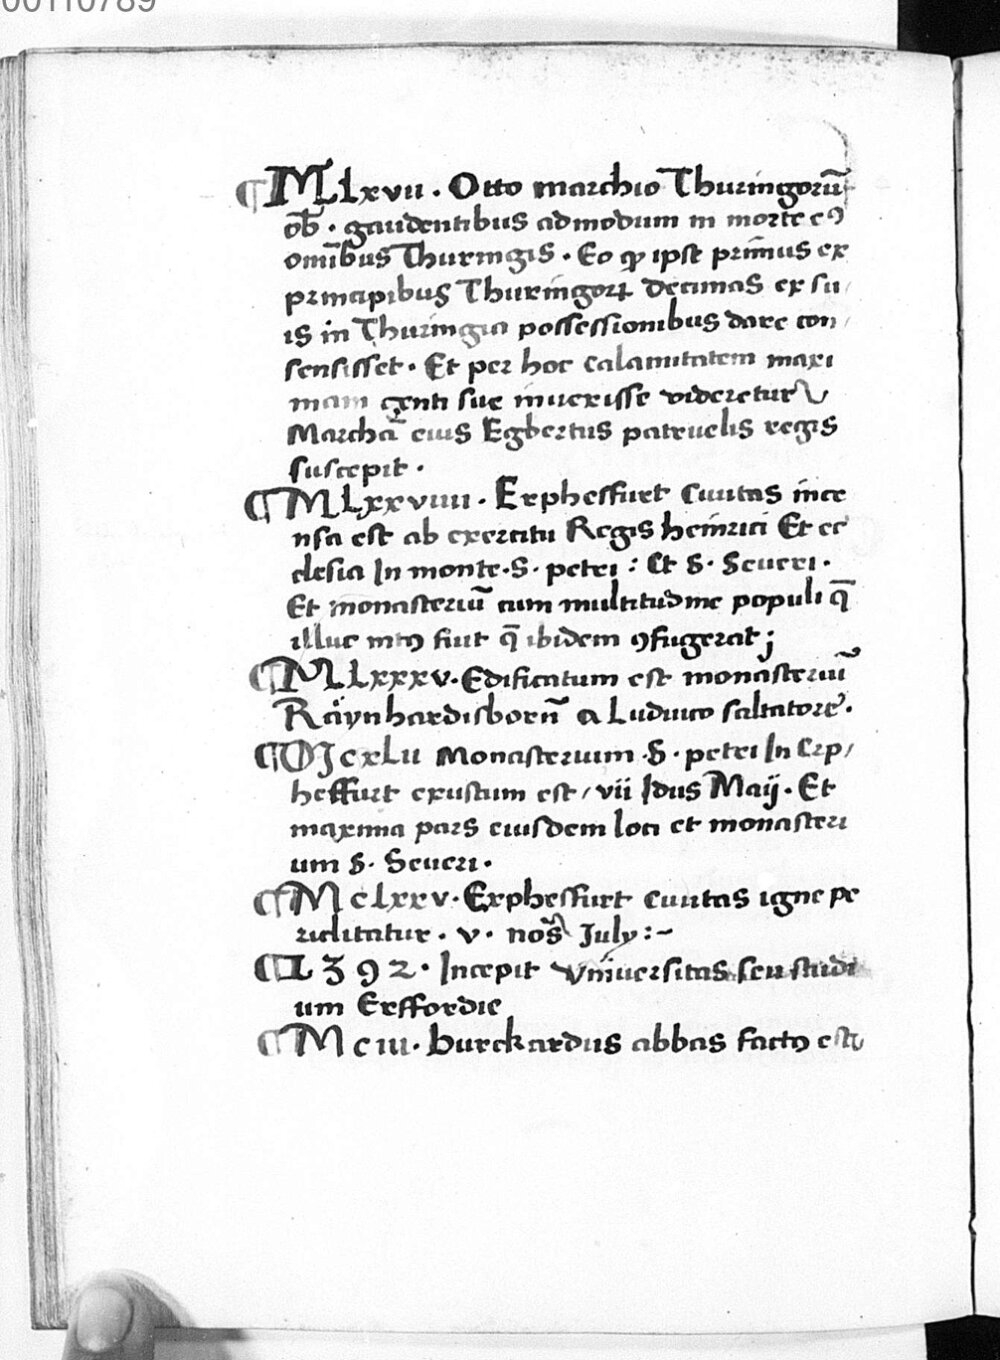 00110789
¶ MLxvii . Otto marchio Thuringorū
ob̄ . gaudentibus admodum in morte eꝰ
om̄ibus Thuringis . Eo ꝙ ipse prīmus ex
principibus Thuringoꝝ decimas ex su/
is in Thuringia possessionibus dare con/
sensisset . Et per hoc calamitatem maxi
mam genti sue inuexisse videretur
Marchā eius Egbertus patruelis regis
suscepit .
¶ MLxxviiii . Erpheffurt Ciuitas ince
nsa est ab exercitu Regis heinrici Et ec
clesia In monte . S . petri : Et S . Seueri .
Et monasteriū cum multitudine populi q̄
illuc intꝰ fuit q̄ ibidem ꝯfugerat ;
¶ MLxxxv . Edificatum est monasteriū
Räynhardisborn̄ a Ludiuco saltatore .
¶ MJcxLii Monasterium . S . petri In Erp/
heffurt exustum est / vii Idus Maij . Et
maxima pars eiusdem loci et monasteri
um S . Seueri .
¶ McLxxv . Erpheffurt ciuitas igne pe
riclitatur . v . nos̄ July :~
¶ 1392 . Incepit Vniuersitas seu studi
um Erffordie
¶ Mciii . Burckardus abbas factꝰ est